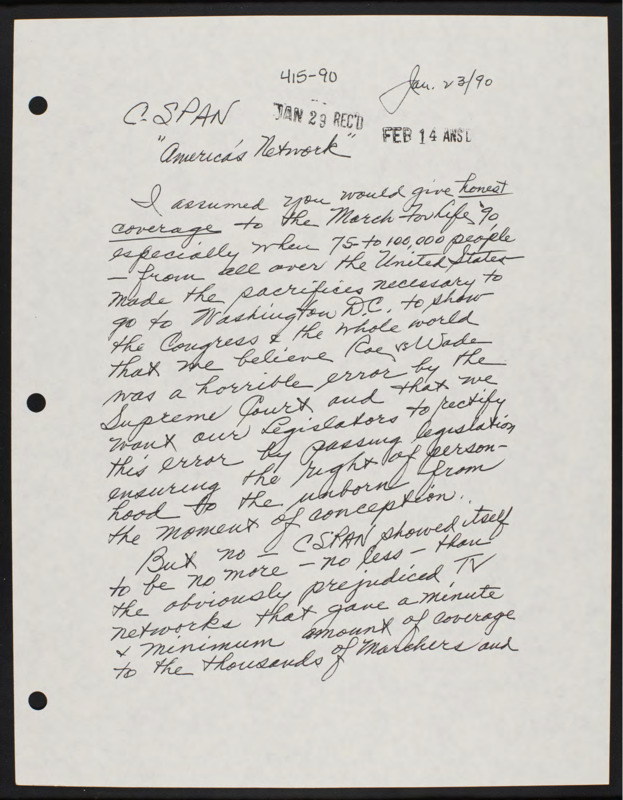 415-90
Jan. 23/90
C-SPAN
JAN 29 REC'D
FEB 14 ANS'D
"America's Network"
I assumed you would give honest
coverage to the March For Life '90,
especially when 75-to 100,000 people
- from all over the United States -
made the sacrifices necessary to
go to Washington D.C. to show
the Congress & the whole world
that we believe Roe vs Wade
was a horrible error by the
Supreme Court and that we
want our Legislators to rectify
this error by passing legislation
ensuring the right of person-
hood to the unborn from
the moment of conception.
But no - CSPAN showed itself
to be no more - no less - than
the obviously prejudiced TV
networks that gave a minute
& minimum amount of coverage
to the thousands of Marchers and